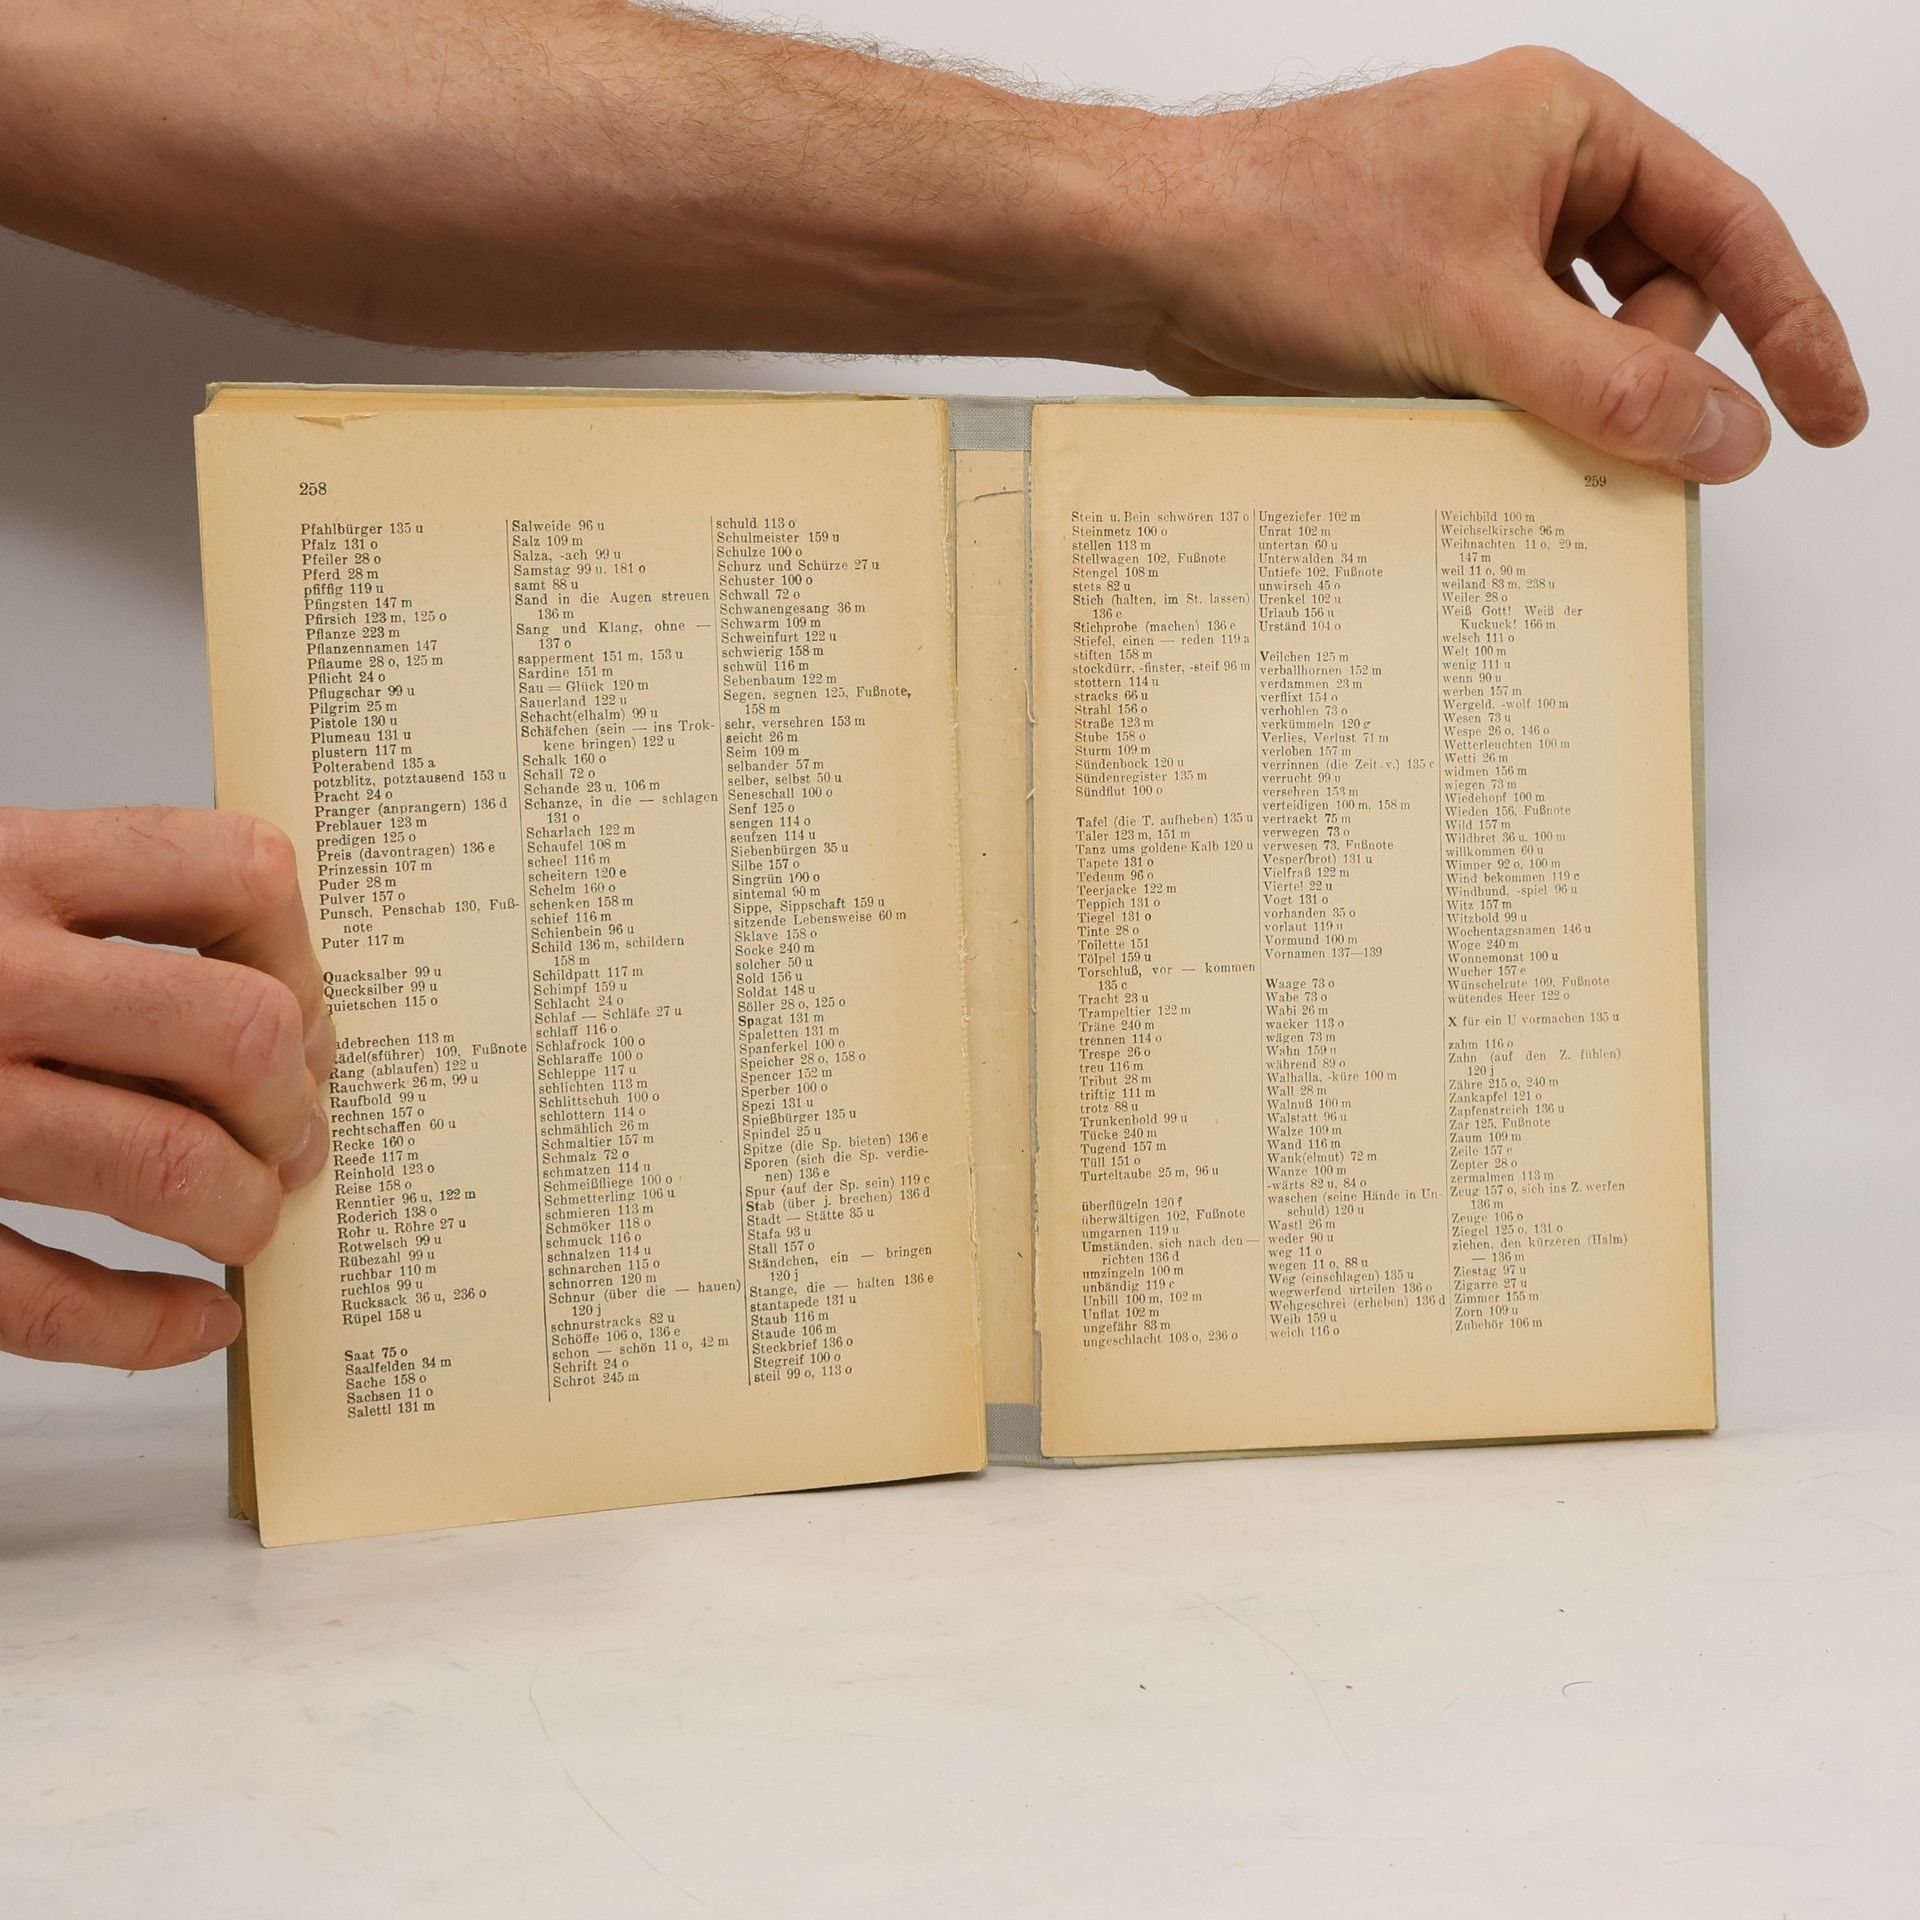 258
Pfahlbürger 135 u
Pfalz 131 o
Pfeiler 28 o
Pferd 28 m
pfiffig 119 u
Pfingsten 147 m
Pfirsich 123 m, 125 o
Pflanze 223 m
Pflanzennamen 147
Pflaume 28 o, 125 m
Pflicht 24 o
Pflugschar 99 u
Pilgrim 25 m
Pistole 130 u
Plumeau 131 u
plustern 117 m
Polterabend 135 a
potzblitz, potztausend 153 u
Pracht 24 o
Pranger (anprangern) 136 d
Preblauer 123 m
predigen 125 o
Preis (davontragen) 136 e
Prinzessin 107 m
Puder 28 m
Pulver 157 o
Punsch, Penschab 130, Fuß-
note
Puter 117 m
Quacksalber 99 u
Quecksilber 99 u
quietschen 115 o
adebrechen 113 m
ädel(sführer) 109, Fußnote
Rang (ablaufen) 122 u
Rauchwerk 26 m, 99 u
Raufbold 99 u
rechnen 157 o
rechtschaffen 60 u
Recke 160 o
Reede 117 m
Reinhold 123 o
Reise 158 o
Renntier 96 u, 122 m
Roderich 138 o
Rohr u. Röhre 27 u
Rotwelsch 99 u
Rübezahl 99 u
ruchbar 110 m
ruchlos 99 u
Rucksack 36 u, 236 o
Rüpel 158 u
Saat 75 o
Saalfelden 34 m
Sache 158 o
Sachsen 11 o
Salettl 131 m
Salweide 96 u
Salz 109 m
Salza, -ach 99 u
Samstag 99 u. 181 o
samt 88 u
Sand in die Augen streuen
136 m
Sang und Klang, ohne —
137 o
sapperment 151 m, 153 u
Sardine 151 m
Sau = Glück 120 m
Sauerland 122 u
Schacht(elhalm) 99 u
Schäfchen (sein — ins Trok-
kene bringen) 122 u
Schalk 160 o
Schall 72 o
Schande 23 u, 106 m
Schanze, in die — schlagen
131 o
Scharlach 122 m
Schaufel 108 m
scheel 116 m
scheitern 120 e
Schelm 160 o
schenken 158 m
schief 116 m
Schienbein 96 u
Schild 136 m, schildern
158 m
Schildpatt 117 m
Schimpf 159 u
Schlacht 24 o
Schlaf — Schläfe 27 u
schlaff 116 o
Schlafrock 100 o
Schlaraffe 100 o
Schleppe 117 u
schlichten 113 m
Schlittschuh 100 o
schlottern 114 o
schmählich 26 m
Schmaltier 157 m
Schmalz 72 o
schmatzen 114 u
Schmeißfliege 100 o
Schmetterling 106 u
schmieren 113 m
Schmöker 118 o
schmuck 116 o
schnalzen 114 u
schnarchen 115 o
schnorren 120 m
Schnur (über die — hauen)
120 j
schnurstracks 82 u
Schöffe 106 o, 136 e
schon — schön 11 o, 42 m
Schrift 24 o
Schrot 245 m
schuld 113 o
Schulmeister 159 u
Schulze 100 o
Schurz und Schürze 27 u
Schuster 100 o
Schwall 72 o
Schwanengesang 36 m
Schwarm 109 m
Schweinfurt 122 u
schwierig 158 m
schwül 116 m
Sebenbaum 122 m
Segen, segnen 125, Fußnote,
158 m
sehr, versehren 153 m
seicht 26 m
Seim 109 m
selbander 57 m
selber, selbst 50 u
Seneschall 100 o
Senf 125 o
sengen 114 o
seufzen 114 u
Siebenbürgen 35 u
Silbe 157 o
Singrün 100 o
sintemal 90 m
Sippe, Sippschaft 159 u
sitzende Lebensweise 60 m
Sklave 158 o
Socke 240 m
solcher 50 u
Sold 156 u
Soldat 148 u
Söller 28 o, 125 o
Spagat 131 m
Spaletten 131 m
Spanferkel 100 o
Speicher 28 o, 158 o
Spencer 152 m
Sperber 100 o
Spezi 131 u
Spießbürger 135 u
Spindel 25 u
Spitze (die Sp. bieten) 136 e
Sporen (sich die Sp. verdie-
nen) 136 e
Spur (auf der Sp. sein) 119 c
Stab (über j. brechen) 136 d
Stadt — Stätte 35 u
Stafa 93 u
Stall 157 o
Ständchen, ein — bringen
120 j
Stange, die — halten 136 e
stantapede 131 u
Staub 116 m
Staude 106 m
Steckbrief 136 o
Stegreif 100 o
steil 99 o, 113 o
259
Stein u. Bein schwören 137 o
Steinmetz 100 o
stellen 113 m
Stellwagen 102, Fußnote
Stengel 108 m
stets 82 u
Stich (halten, im St. lassen)
136 e
Stichprobe (machen) 136 e
Stiefel, einen — reden 119 a
stiften 158 m
stockdürr, -finster, -steif 96 m
stottern 114 u
stracks 66 u
Strahl 156 o
Straße 123 m
Stube 158 o
Sturm 109 m
Sündenbock 120 u
Sündenregister 135 m
Sündflut 100 o
Tafel (die T. aufheben) 135 u
Taler 123 m, 151 m
Tanz ums goldene Kalb 120 u
Tapete 131 o
Tedeum 96 o
Teerjacke 122 m
Teppich 131 o
Tiegel 131 o
Tinte 28 o
Toilette 151
Tölpel 159 u
Torschluß, vor — kommen
135 c
Tracht 23 u
Trampeltier 122 m
Träne 240 m
trennen 114 o
Trespe 26 o
treu 116 m
Tribut 28 m
triftig 111 m
trotz 88 u
Trunkenbold 99 u
Tücke 240 m
Tugend 157 m
Tüll 151 o
Turteltaube 25 m, 96 u
überflügeln 120 f
überwältigen 102, Fußnote
umgarnen 119 u
Umständen, sich nach den —
richten 136 d
umzingeln 100 m
unbändig 119 c
Unbill 100 m, 102 m
Unflat 102 m
ungefähr 83 m
ungeschlacht 103 o, 236 o
Ungeziefer 102 m
Unrat 102 m
untertan 60 u
Unterwalden 34 m
Untiefe 102, Fußnote
unwirsch 45 o
Urenkel 102 u
Urlaub 156 u
Urständ 104 o
Veilchen 125 m
verballhornen 152 m
verdammen 23 m
verflixt 154 o
verhohlen 73 o
verkümmeln 120 g
Verlies, Verlust 71 m
verloben 157 m
verrinnen (die Zeit v.) 135 c
verrucht 99 u
versehren 153 m
verteidigen 100 m, 158 m
vertrackt 75 m
verwegen 73 o
verwesen 73, Fußnote
Vesper(brot) 131 u
Vielfraß 122 m
Viertel 22 u
Vogt 131 o
vorhanden 35 o
vorlaut 119 u
Vormund 100 m
Vornamen 137—139
Waage 73 o
Wabe 73 o
Wabi 26 m
wacker 113 o
wägen 73 m
Wahn 159 u
während 89 o
Walhalla, -küre 100 m
Wall 28 m
Walnuß 100 m
Walstatt 96 u
Walze 109 m
Wand 116 m
Wank(elmut) 72 m
Wanze 100 m
-wärts 82 u, 84 o
waschen (seine Hände in Un-
schuld) 120 u
Wastl 26 m
weder 90 u
weg 11 o
wegen 11 o, 88 u
Weg (einschlagen) 135 u
wegwerfend urteilen 136 o
Wehgeschrei (erheben) 136 d
Weib 159 u
weich 116 o
Weichbild 100 m
Weichselkirsche 96 m
Weihnachten 11 o, 29 m,
147 m
weil 11 o, 90 m
weiland 83 m, 238 u
Weiler 28 o
Weiß Gott! Weiß der
Kuckuck! 166 m
welsch 111 o
Welt 100 m
wenig 111 u
wenn 90 u
werben 157 m
Wergeld, -wolf 100 m
Wesen 73 u
Wespe 26 o, 146 o
Wetterleuchten 100 m
Wetti 26 m
widmen 156 m
wiegen 73 m
Wiedehopf 100 m
Wieden 156, Fußnote
Wild 157 m
Wildbret 36 u, 100 m
willkommen 60 u
Wimper 92 o, 100 m
Wind bekommen 119 c
Windhund, -spiel 96 u
Witz 157 m
Witzbold 99 u
Wochentagsnamen 146 u
Woge 240 m
Wonnemonat 100 u
Wucher 157 e
Wünschelrute 109, Fußnote
wütendes Heer 122 o
X für ein U vormachen 135 u
zahm 116 o
Zahn (auf den Z. fühlen)
120 j
Zähre 215 o, 240 m
Zankapfel 121 o
Zapfenstreich 136 u
Zar 125, Fußnote
Zaum 109 m
Zeile 157 e
Zepter 28 o
zermalmen 113 m
Zeug 157 o, sich ins Z. werfen
136 m
Zeuge 106 o
Ziegel 125 o, 131 o
ziehen, den kürzeren (Halm)
— 136 m
Ziestag 97 u
Zigarre 27 u
Zimmer 155 m
Zorn 109 u
Zubehör 106 m